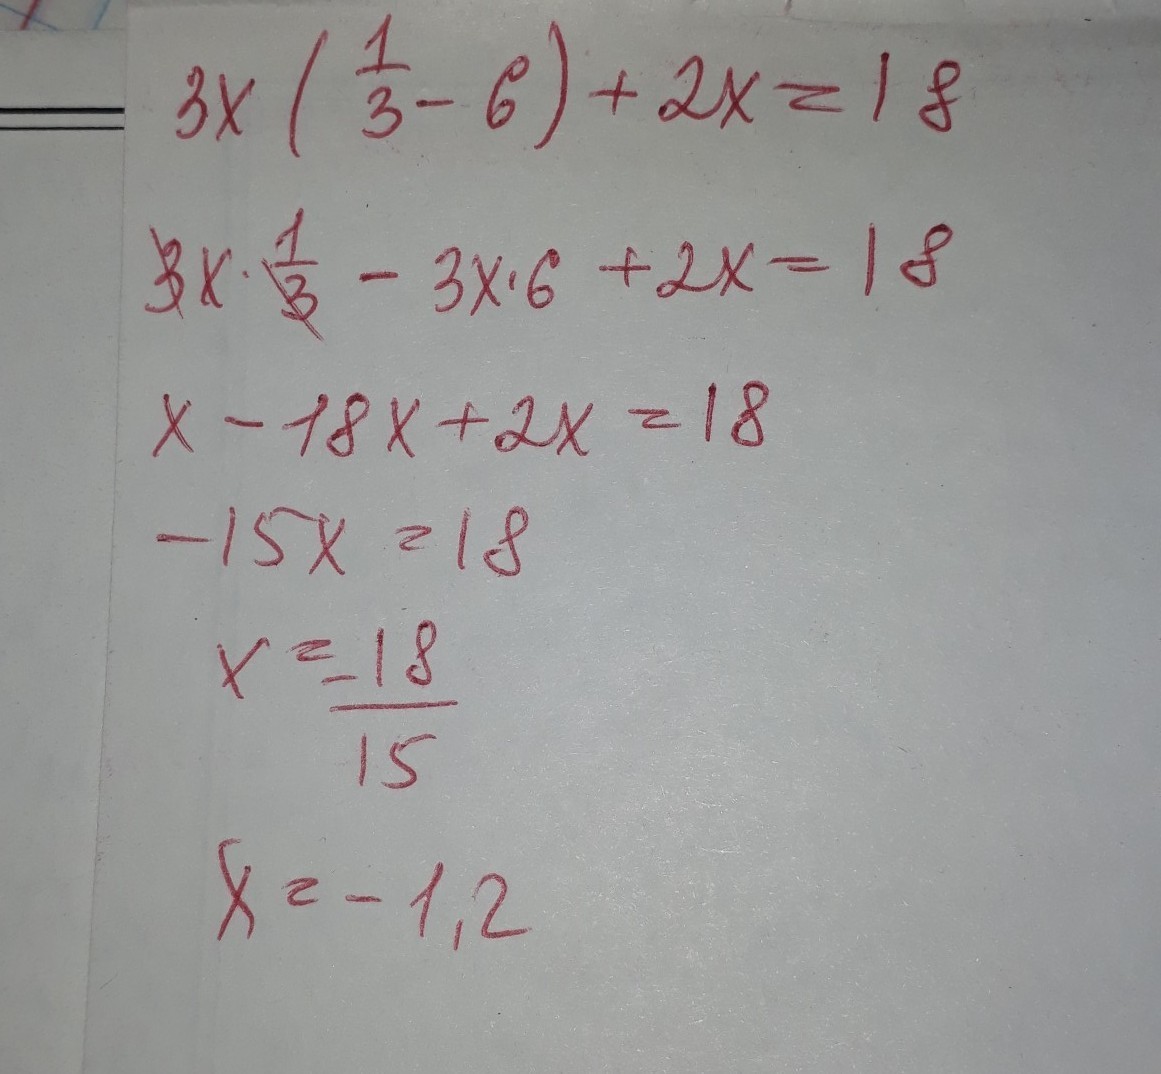 3x(1/3 - 6) + 2x = 18
3x · 1/3 - 3x · 6 + 2x = 18
x - 18x + 2x = 18
-15x = 18
x = -18/15
x = -1,2